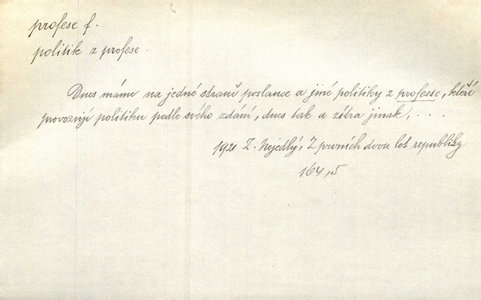 profese f.
politik z profese.
Dnes máme na jedné straně poslance a jiné politiky z professe, kteří
provozují politiku podle svého zdání, dnes tak a zítra jinak, . . .
1921 Z. Nejedlý, Z prvních dvou let republiky
164,5